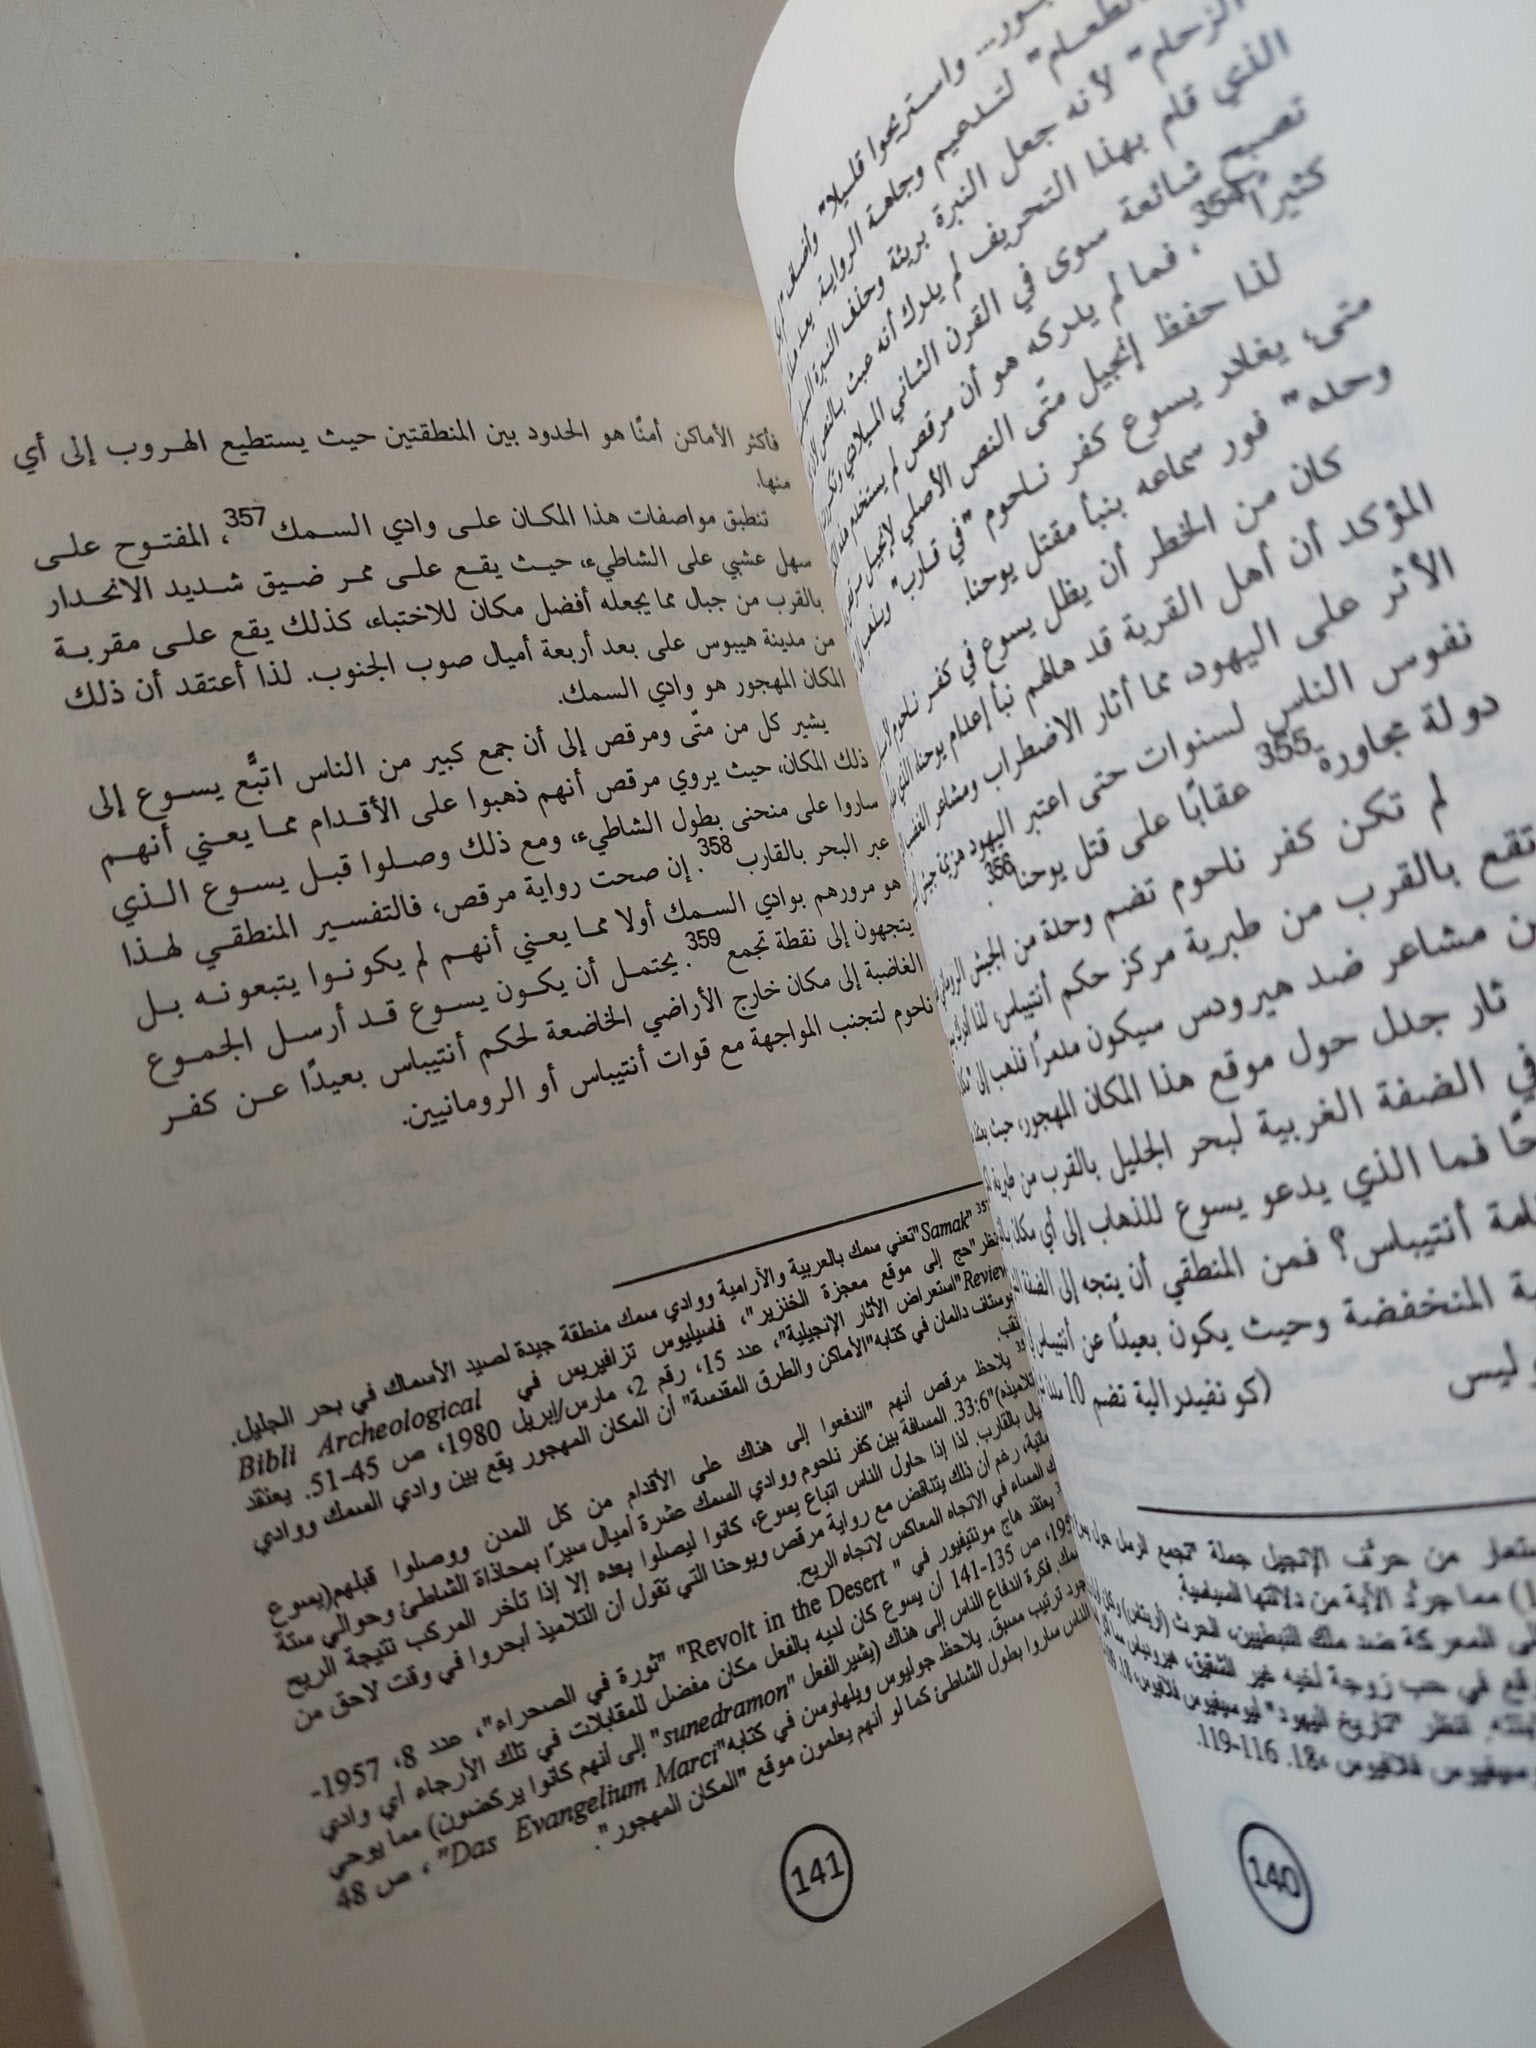 واستريحوا قليلا" وأضاف
الطعام" لتدعيم وجاهة الرواية.
الزحام" لأنه جعل النبرة بريئة وحذف النبرة
الذي قام بهذا التحريف لم يدرك أنه عبث بالنص
تصبح شائعة سوى في القرن الثاني الميلادي
كثيرًا354، فما لم يدركه هو أن مرقص لم يستخدم
لذا حفظ إنجيل متّى النص الأصلي لإنجيل
متى، يغادر يسوع كفر ناحوم "في قارب"
وحده" فور سماعه بنبأ مقتل يوحنا.
كان من الخطر أن يظل يسوع في كفر ناحوم
المؤكد أن أهل القرية قد هالهم نبأ إعدام يوحنا
الأثر على اليهود، مما أثار الاضطراب ومشاعر
نفوس الناس لسنوات حتى اعتبر اليهود هزيمة جيش
دولة مجاورة355 عقابًا على قتل يوحنا356.
لم تكن كفر ناحوم تضم وحدة من الجيش
تقع بالقرب من طبرية مركز حكم أنتيباس، لذا
مشاعر ضد هيرودس سيكون مدمرًا فذهب إلى
ثار جدل حول موقع هذا المكان المهجور، حيث
في الضفة الغربية لبحر الجليل بالقرب من طبرية
فما الذي يدعو يسوع للذهاب إلى أي مكان
أنتيباس؟ فمن المنطقي أن يتجه إلى الضفة
المنخفضة وحيث يكون بعيدًا عن
(كونفيدرالية تضم 10
من حرّف الإنجيل جملة "تجمع الرسل حول
مما جردّ الآية من دلالتها السياسية
المعركة ضد ملك النبطيين، الحرث
في حب زوجة أخيه غير الشقيق،
انظر "تاريخ اليهود" ليوسيفيوس فلافيوس،
فلافيوس، 18. 116-119.
140
فأكثر الأماكن أمنًا هو الحدود بين المنطقتين حيث يستطيع الهروب إلى أي
منها.
تنطبق مواصفات هذا المكان على وادي السمك357، المفتوح على
سهل عشبي على الشاطيء، حيث يقع على ممر ضيق شديد الانحدار
بالقرب من جبال مما يجعله أفضل مكان للاختباء، كذلك يقع على مقربة
من مدينة هيبوس على بعد أربعة أميال صوب الجنوب. لذا أعتقد أن ذلك
المكان المهجور هو وادي السمك.
يشير كل من متّى ومرقص إلى أن جمع كبير من الناس اتبَّع يسوع إلى
ذلك المكان، حيث يروي مرقص أنهم ذهبوا على الأقدام مما يعني أنهم
ساروا على منحنى بطول الشاطيء، ومع ذلك وصلوا قبل يسوع الذي
عبر البحر بالقارب358. إن صحت رواية مرقص، فالتفسير المنطقي لهذا
هو مرورهم بوادي السمك أولا مما يعني أنهم لم يكونوا يتبعونه بل
يتجهون إلى نقطة تجمع359. يحتمل أن يكون يسوع قد أرسل الجموع
الغاضبة إلى مكان خارج الأراضي الخاضعة لحكم أنتيباس بعيدًا عن كفر
ناحوم لتجنب المواجهة مع قوات أنتيباس أو الرومانيين.
"Samak" تعني سمك بالعربية والآرامية ووادي سمك منطقة جيدة لصيد الأسماك في بحر الجليل.
"حج إلى موقع معجزة الخنزير"، فاسيليوس تزافيريس في Bibli Archeological
Review "استعراض الآثار الإنجيلية"، عدد 15، رقم 2، مارس/إبريل 1980، ص 45-51. يعتقد
دالمان في كتابه "الأماكن والطرق المقدسة" أن المكان المهجور يقع بين وادي السمك ووادي
يلاحظ مرقص أنهم "اندفعوا إلى هناك على الأقدام من كل المدن ووصلوا قبلهم(يسوع
33:6". المسافة بين كفر ناحوم ووادي السمك عشرة أميال سيرًا بمحاذاة الشاطئ وحوالي ستة
بالقارب. لذا إذا حاول الناس اتباع يسوع، كانوا ليصلوا بعده إلا إذا تأخر المركب نتيجة الريح
رغم أن ذلك يتناقض مع رواية مرقص ويوحنا التي تقول أن التلاميذ أبحروا في وقت لاحق من
المساء في الاتجاه المعاكس لاتجاه الريح.
يعتقد هاج مونتيفيور في "Revolt in the Desert" "ثورة في الصحراء"، عدد 8، 1957-
ص 135-141 أن يسوع كان لديه بالفعل مكان مفضل للمقابلات في تلك الأرجاء أي وادي
فكرة اندفاع الناس إلى هناك (يشير الفعل "sunedramon" إلى أنهم كانوا يركضون) مما يوحي
ترتيب مسبق. يلاحظ جوليوس ويلهاوسن في كتابه "Das Evangelium Marci"، ص 48
الناس ساروا بطول الشاطئ كما لو أنهم يعلمون موقع "المكان المهجور".
141